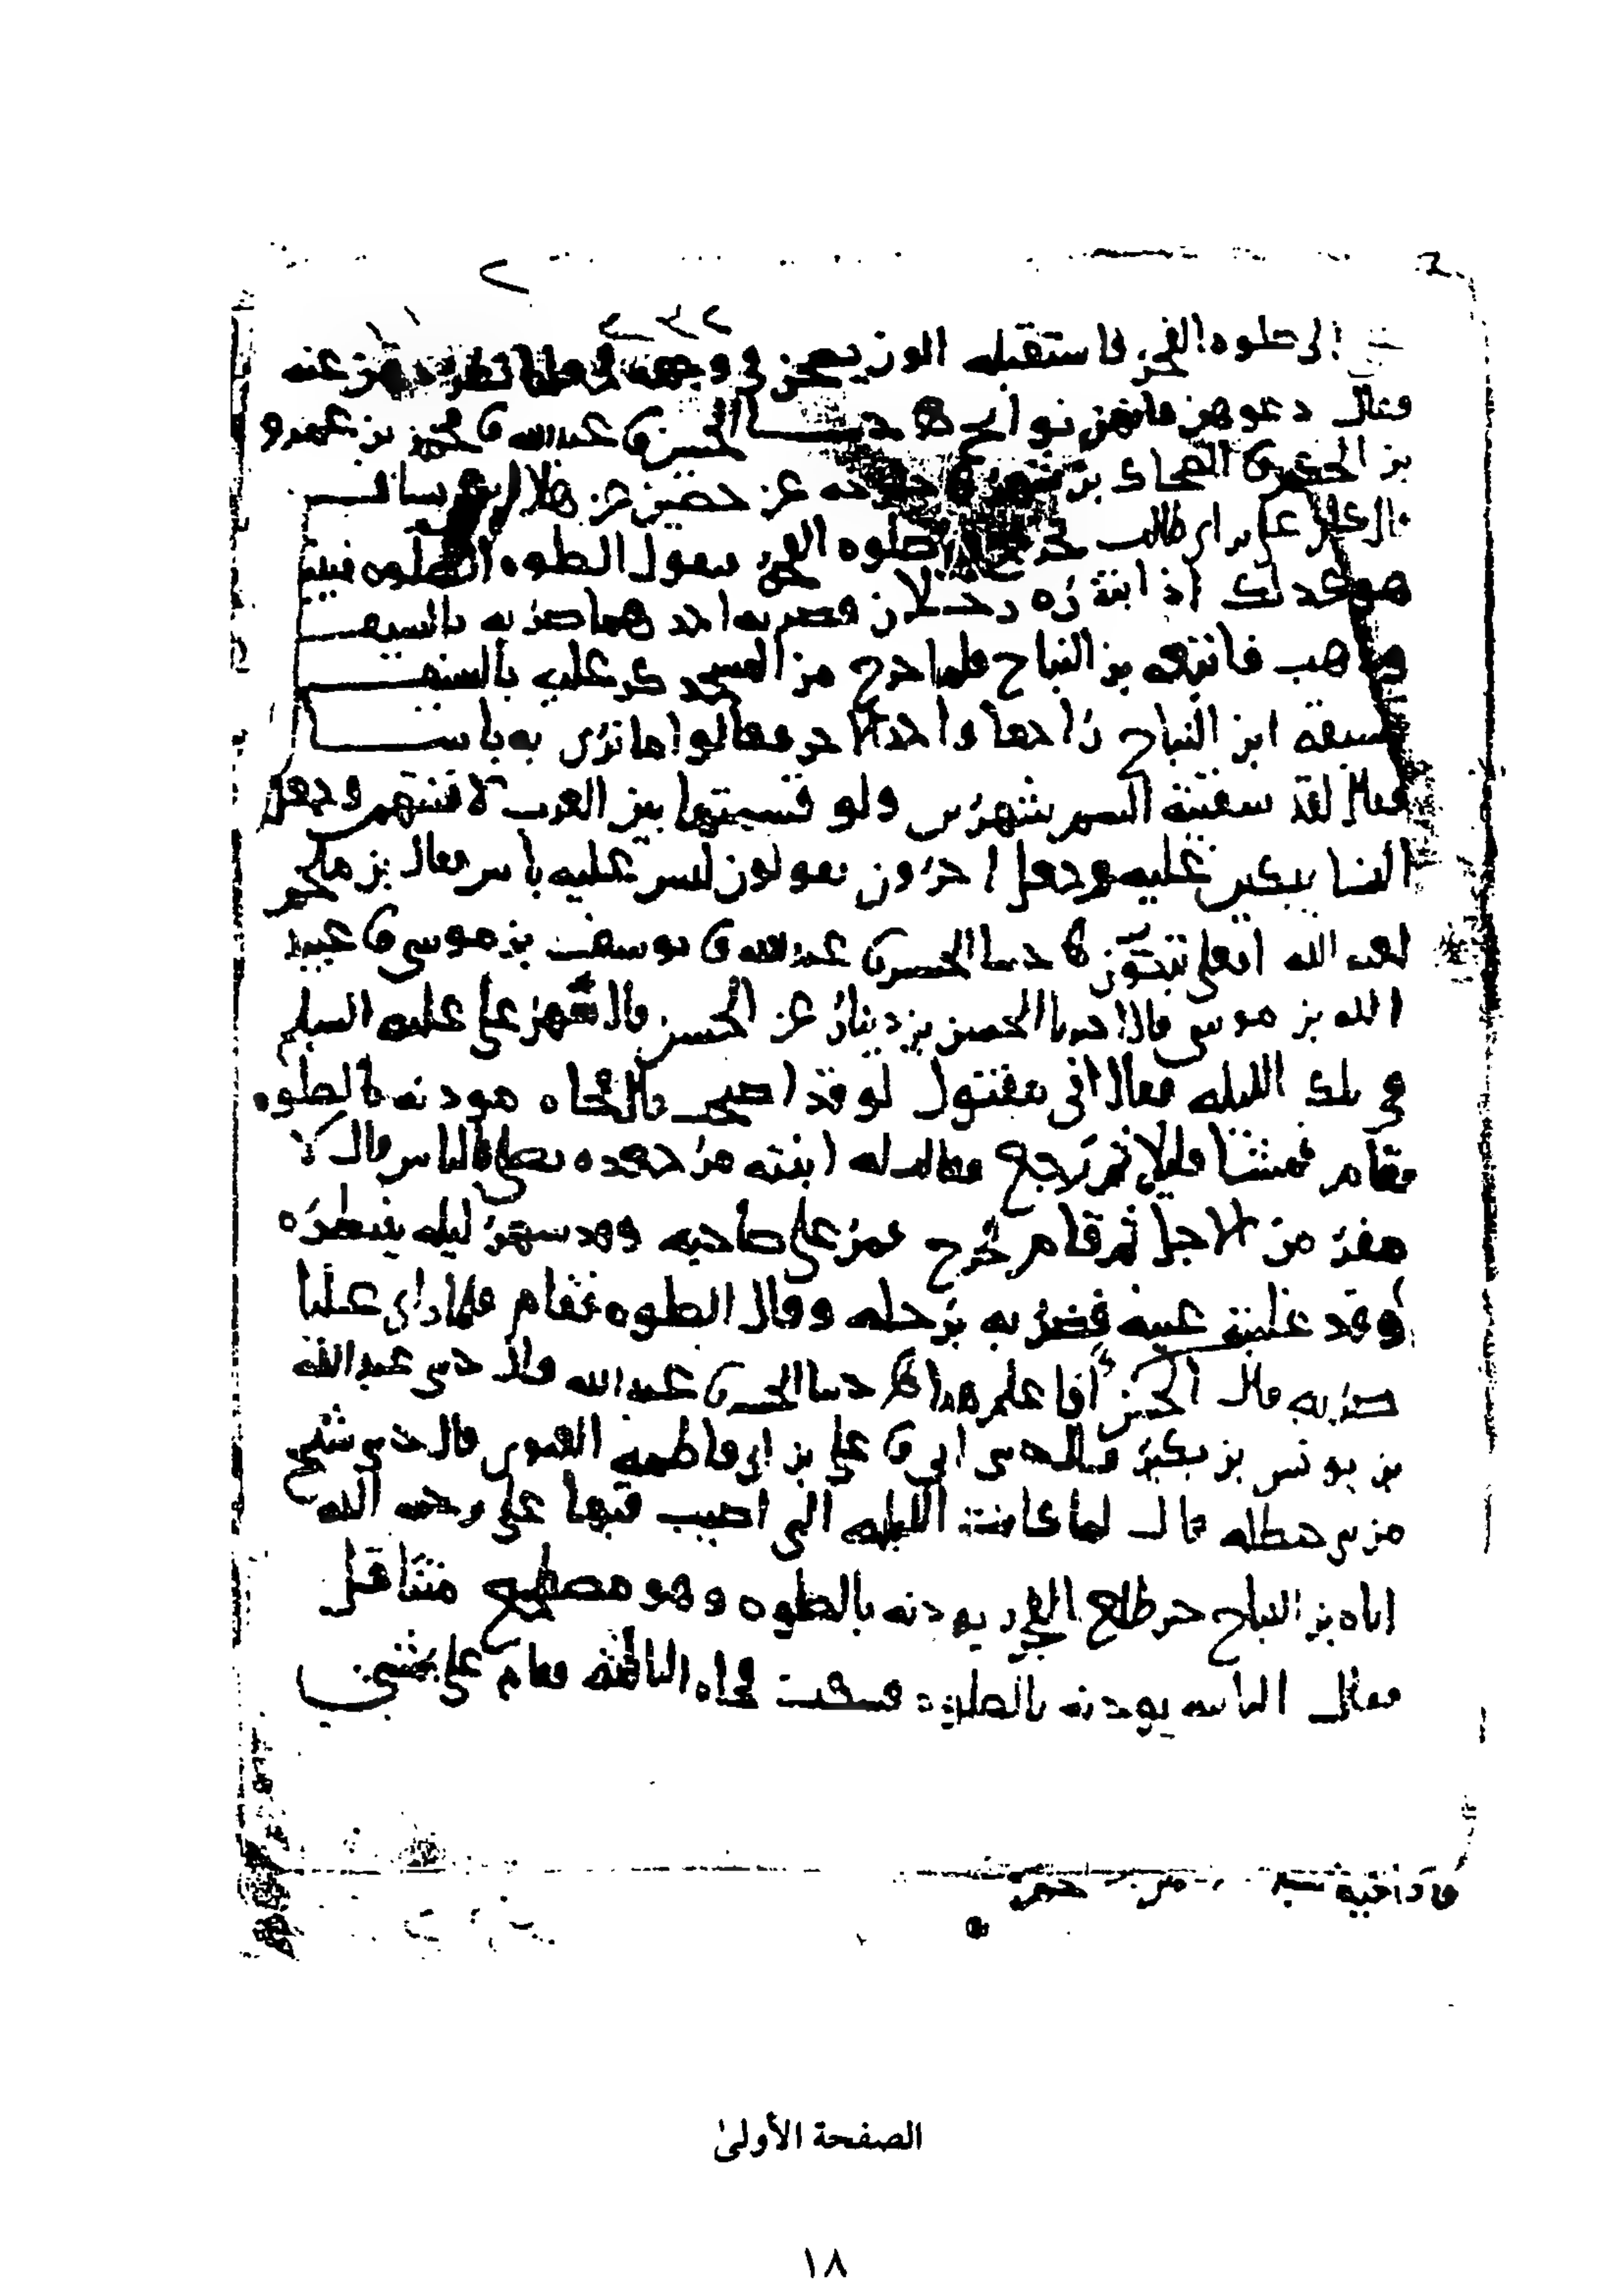 الى صلوه الفجر فاستقبله الوز يصحن في وجهه فجعلنا نطردهن عنه
فقال دعوهن فانهن نوائح حدسا الحسين عبدالله محمد بن عمرو
بن الحكم الضحاك بن شهر خارجه عن حصين عن هلال بن يساف
قال كان علي بن ابي طالب يخرج الى صلوه الفجر يقول الصلوه الصلوه فبينا
هو كذلك اذ ابتدره رجلان فضربه احدهما ضربه بالسيف
وذهب فاتبعه بن النباح فلما خرج من المسجد كر عليه بالسيف
فسبقه ابن النباح راجعا واخذ الاخر فقالوا ما نرى به باسا
فقال لقد سقيته السم شهرين ولو قسمتها بين العرب لافنتهم وجعل
النسا يبكين عليه وجعل اخرون يقولون ليس عليه باس فقال بن ملجم
لعبد الله افعلي تبكين حدسا الحسين عبدالله يوسف بن موسى عبيد
الله بن موسى قال حدسا الحسن بن دينار عن الحسن قال سهر علي عليه السلم
في تلك الليله فقال اني مقتول لو قد اصبحت قال فجاه موذنه بالصلوه
فقام فمشا قليلا ثم رجع فقالت له ابنته مر جعده يصلي بالناس قال لا
مفر من الاجل ثم قام فخرج فمر على صاحبه وقد سهر ليله ينتظره
وقد غلبته عينه فضربه برجله وقال الصلوه فقام فلما راى عليا
ضربه قال الحسن انا اعلم هذا حدسا الحسين عبدالله قال حدسى عبدالله
بن يونس بن بكير قال حدسى ابي علي بن ابي فاطمه الغنوي قال حدسى شيخ
من بني حنظله قال لما كانت الليله التي اصيب فيها علي رحمه الله
اتاه بن النباح حين طلع الفجر يوذنه بالصلوه وهو مضطجع متثاقل
فقال الثانيه يوذنه بالصلوه فسكت فجاه الثالثه فقام علي يمشي
الصفحة الأولىٰ
١٨